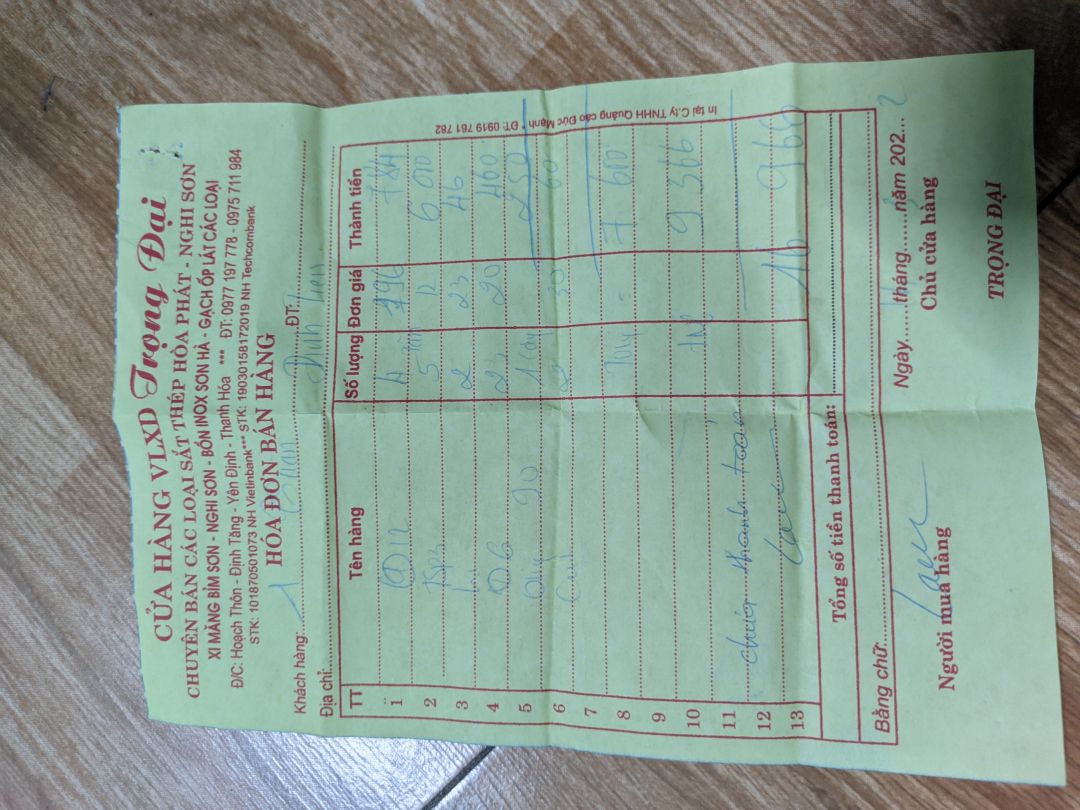 CỬA HÀNG VLXD Trọng Đại
CHUYÊN BÁN CÁC LOẠI SẮT THÉP HÒA PHÁT - NGHI SƠN
XI MĂNG BỈM SƠN - NGHI SƠN - BỒN INOX SƠN HÀ - GẠCH ỐP LÁT CÁC LOẠI
Đ/C: Hoạch Thôn - Định Tăng - Yên Định - Thanh Hóa *** ĐT: 0977 197 778 - 0975 711 984
STK: 101870501073 NH Vietinbank*** STK: 19030158172019 NH Techcombank
HÓA ĐƠN BÁN HÀNG
Khách hàng: ĐT:
Địa chỉ:
TT Tên hàng Số lượng Đơn giá Thành tiền
1 Đ12 4 196 784
2 5 12 6 000
3 2 23 46
4 Đ6 23 20 460
5 90 1 cây 250
6 2 30 60
7
8 7 600
9
10 9 366
11 chưa thanh toán
12
13 16 966
Tổng số tiền thanh toán:
Bằng chữ:
Ngày tháng 3 năm 2022
Người mua hàng Chủ cửa hàng
TRỌNG ĐẠI
In tại C.ty TNHH Quảng cáo Đức Mạnh * ĐT: 0919 761 782